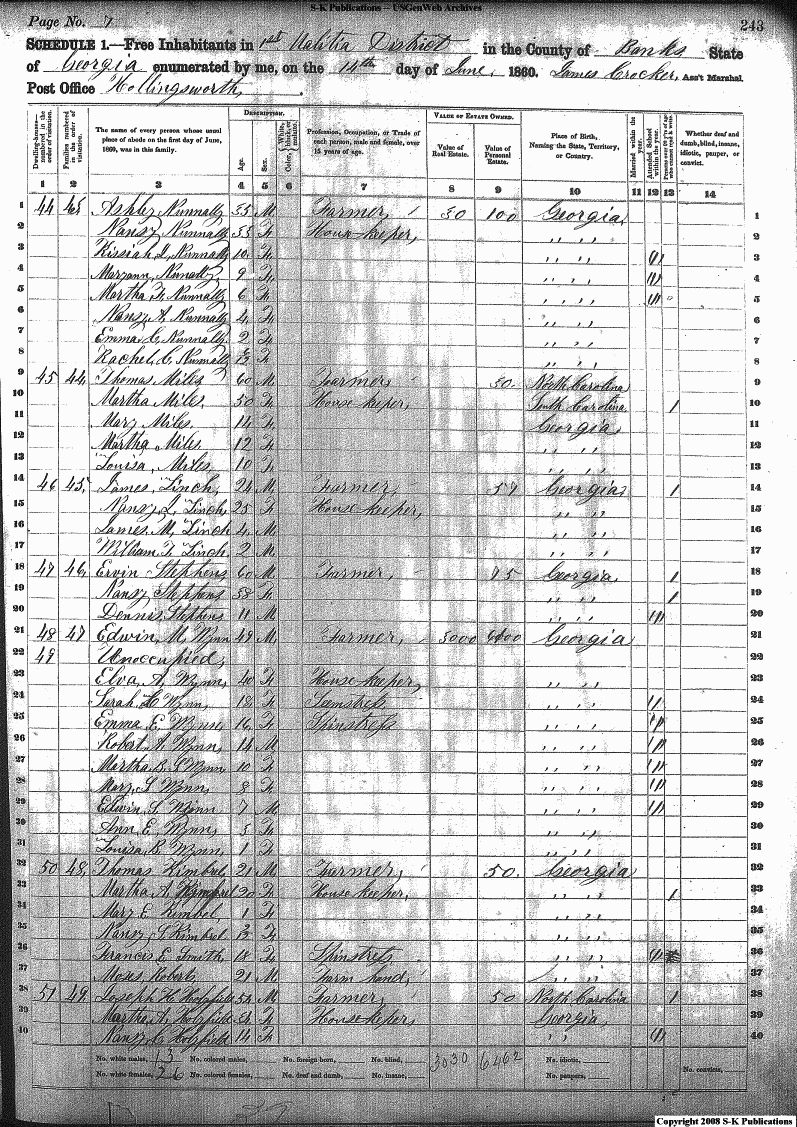 S-K Publications – USGenWeb Archives
Page No. 7
243
SCHEDULE 1.—Free Inhabitants in 1st Malitia District in the County of Banks State
of Georgia enumerated by me, on the 14th day of June, 1860. James Crocker, Ass't Marshal
Post Office Hollingsworth,
Dwelling-houses—numbered in the order of visitation.
Families numbered in the order of visitation.
The name of every person whose usual place of abode on the first day of June, 1860, was in this family.
DESCRIPTION.
Age.
Sex.
Color, White, black, or mulatto.
Profession, Occupation, or Trade of each person, male and female, over 15 years of age.
VALUE OF ESTATE OWNED.
Value of Real Estate.
Value of Personal Estate.
Place of Birth, Naming the State, Territory, or Country.
Married within the year.
Attended School within the year.
Whether deaf and dumb, blind, insane, idiotic, pauper, or convict.
1 2 3 4 5 6 7 8 9 10 11 12 13 14
1 44 Ashley Nunnally 35 M Farmer, 30 100 Georgia, 1
2 Nansy Nunnally 33 F House keeper, " " 2
3 Kissiah Nunnally 10 F " " 3
4 Maryann, Nunnally 9 F " " 4
5 Martha F, Nunnally 6 F " " 5
6 Nansy A, Nunnally 4 F " " 6
7 Emma C, Nunnally 2 F " " 7
8 Rachel, C, Nunnally F " " 8
9 45 44 Thomas, Miles 60 M Farmer, 50. North Carolina 9
10 Martha Miles, 50 F House keeper, South Carolina 1 10
11 Mary Miles, 14 F Georgia 11
12 Martha Miles, 12 F " " 12
13 Louisa, Miles, 10 F " " 13
14 46 45, James, Linch, 24 M Farmer, 57 Georgia, 1 14
15 Nansy L, Linch, 25 F House keeper, " " 15
16 James M, Linch 4 M " " 16
17 William T, Linch, 2 M " " 17
18 47 46, Ervin Stephens 60 M Farmer, 75 Georgia, 1 18
19 Nansy Stephens 58 F " " 1 19
20 Dennis, Stephens 11 M " " 20
21 48 47 Edwin, M, Wynn 49 M, Farmer, 3000 Georgia 21
22 49 Unoccupied, 22
23 Elva, A, Wynn, 40 F House keeper, " " 23
24 Sarah, Wynn, 18 F Seamstress " " 24
25 Emma E, Wynn, 16 F Spinstress " " 25
26 Robert, A, Wynn, 14 M " " 26
27 Martha, B, S, Wynn, 10 F " " 27
28 Mary, S, Wynn, 8 F " " 28
29 Edwin, S, Wynn 7 M " " 29
30 Ann E, Wynn, 5 F " " 30
31 Louisa, B, Wynn, 1 F " " 31
32 50 48, Thomas Kimbel, 21 M Farmer, 50. Georgia 32
33 Martha, A, 20 F House keeper, 1 33
34 Mary E, Kimbel, 1 F " " 34
35 Nansy, Kimbel F " " 35
36 Francis E, Smith, 18 F Spinstress " " 36
37 Moses, Roberts, 21 M Farm hand, " " 37
38 51 49 Joseph H, Holyfield 54 M Farmer, 50 North Carolina 1 38
39 Martha, A, Holyfield 54 F House keeper, Georgia, 39
40 Nansy, C, Holyfield 14 F " " 40
No. white males, 13 No. colored males, No. foreign born, No. blind, 3030 6462 No. idiotic,
No. white females, 26 No. colored females, No. deaf and dumb, No. insane, No. paupers, No. convicts,
Copyright 2008 S-K Publications